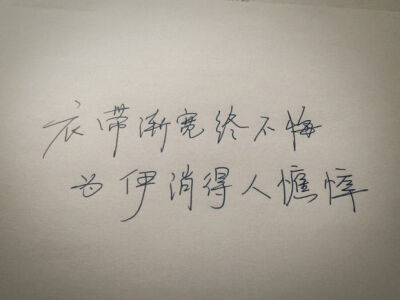 衣带渐宽终不悔
为伊消得人憔悴